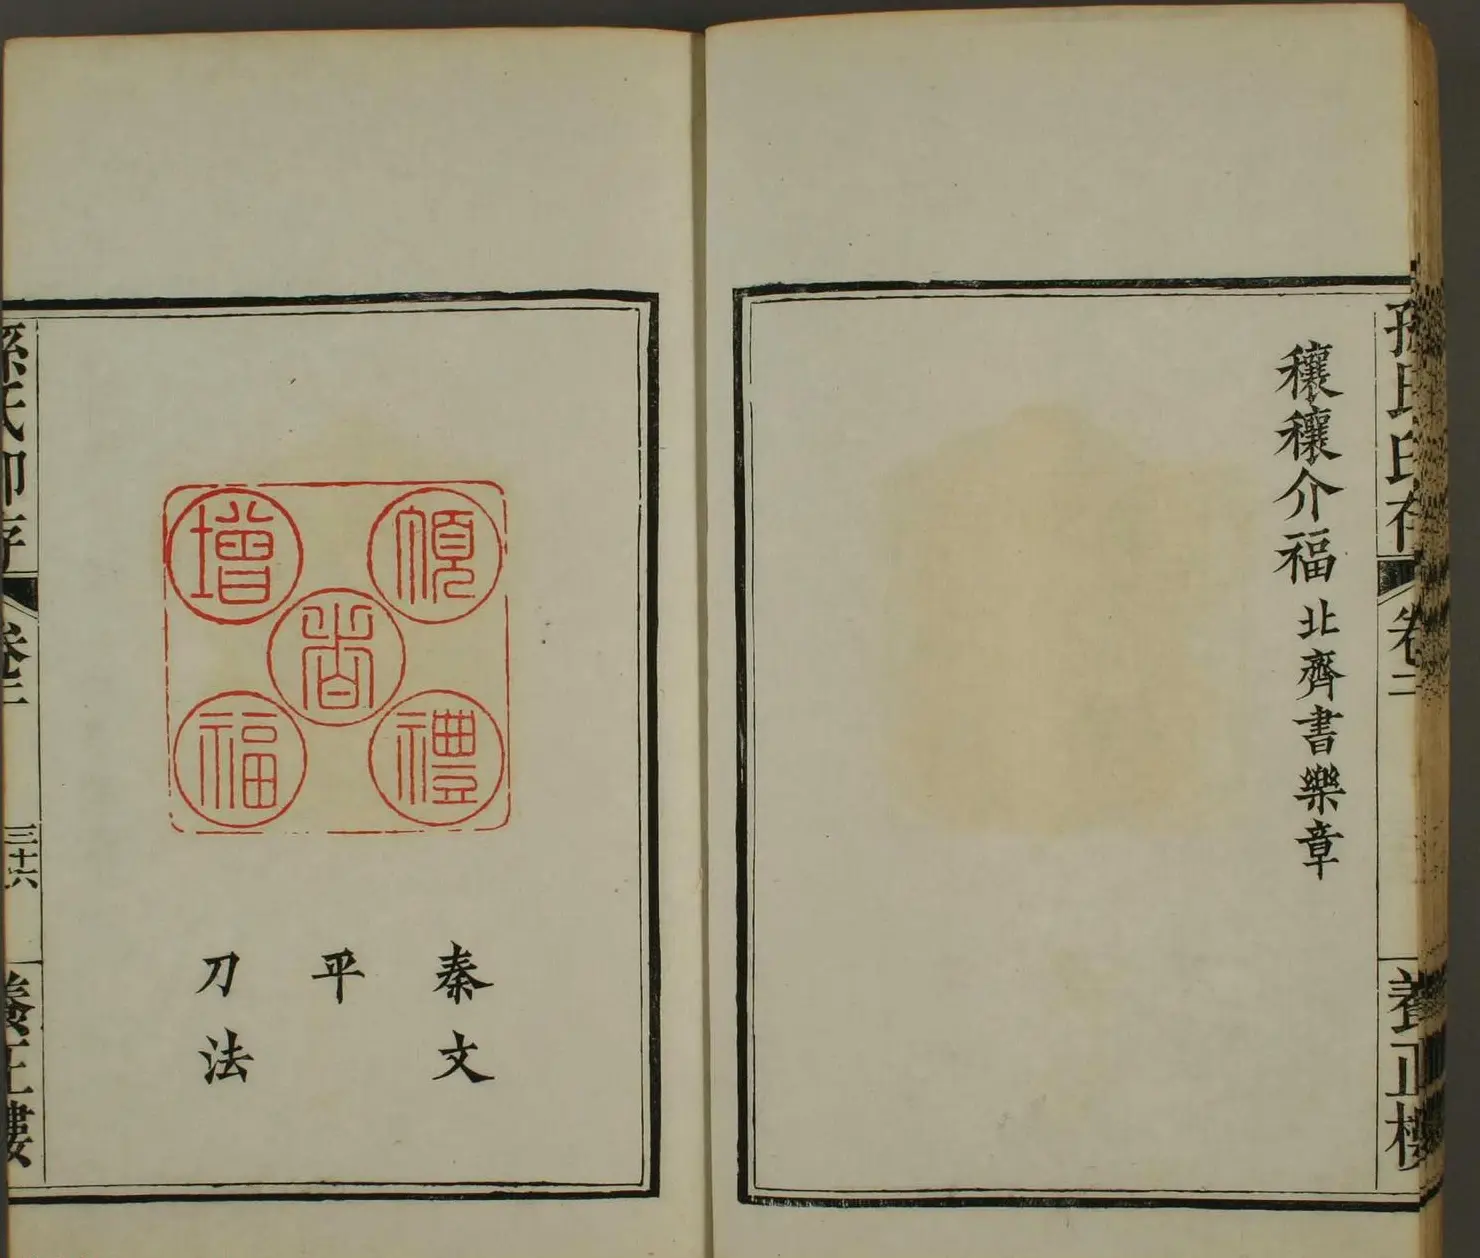 孫氏印存
卷二
養正樓
穰穰介福 北齊書樂章
順
禮
增
福
秦文
平
刀法
孫氏印存
卷二
三十六
養正樓